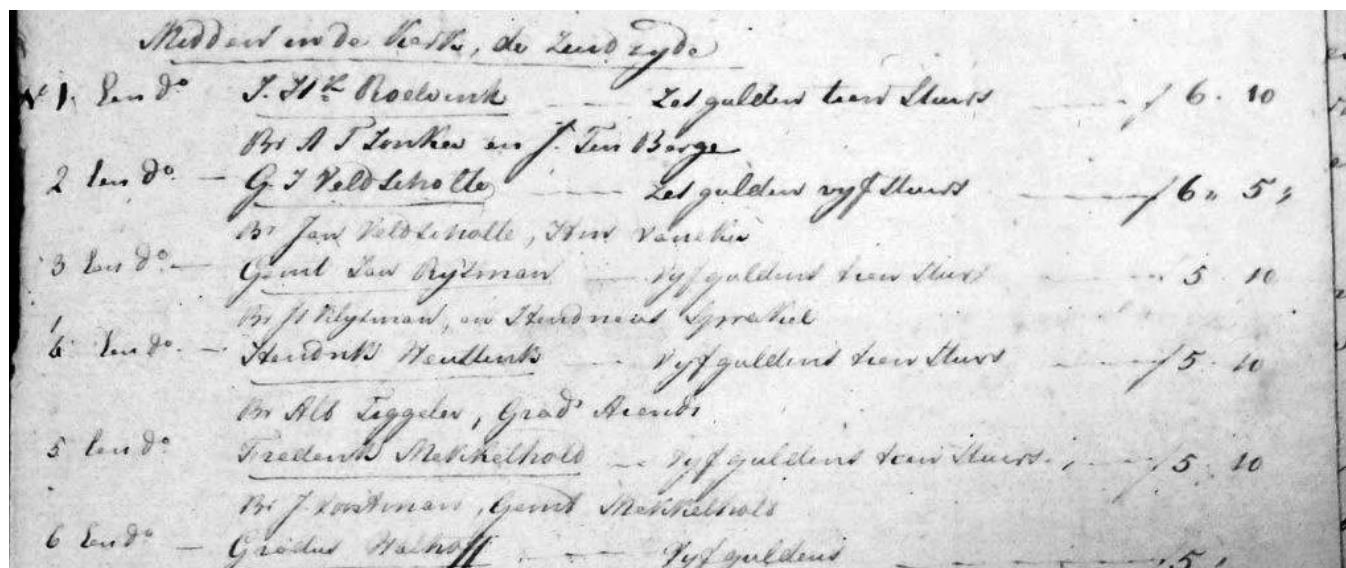 Midden in de Kerk, de Zuid zyde
N° 1. Een d° J. H^k Roelvink — Zes gulden tien Stuivs — f 6 . 10
Br A T Lonker en J. Ten Barge
2 Een d° — G. J Veldscholte — Zes gulden vyf Stuivs — f 6 „ 5 „
Br Jan Veldscholte, Hin Vaneker
3 Een d° — Gerrit Jan Rytman — Vyf guldens tien Stuivs — f 5 . 10
Br H Rytman, en Hendricus Sprakel
4 Een d° — Hendrik Weullink — Vyf guldens tien Stuivs — f 5 . 10
Br Alb Tiggeler, Grads Arends
5 Een d° Frederik Mekkelhold — Vyf guldens tien Stuivs — f 5 . 10
Br J. , Gerrit Mekkelhold
6 Een d° — Gradus Walhoff — Vyf guldens — f 5 „